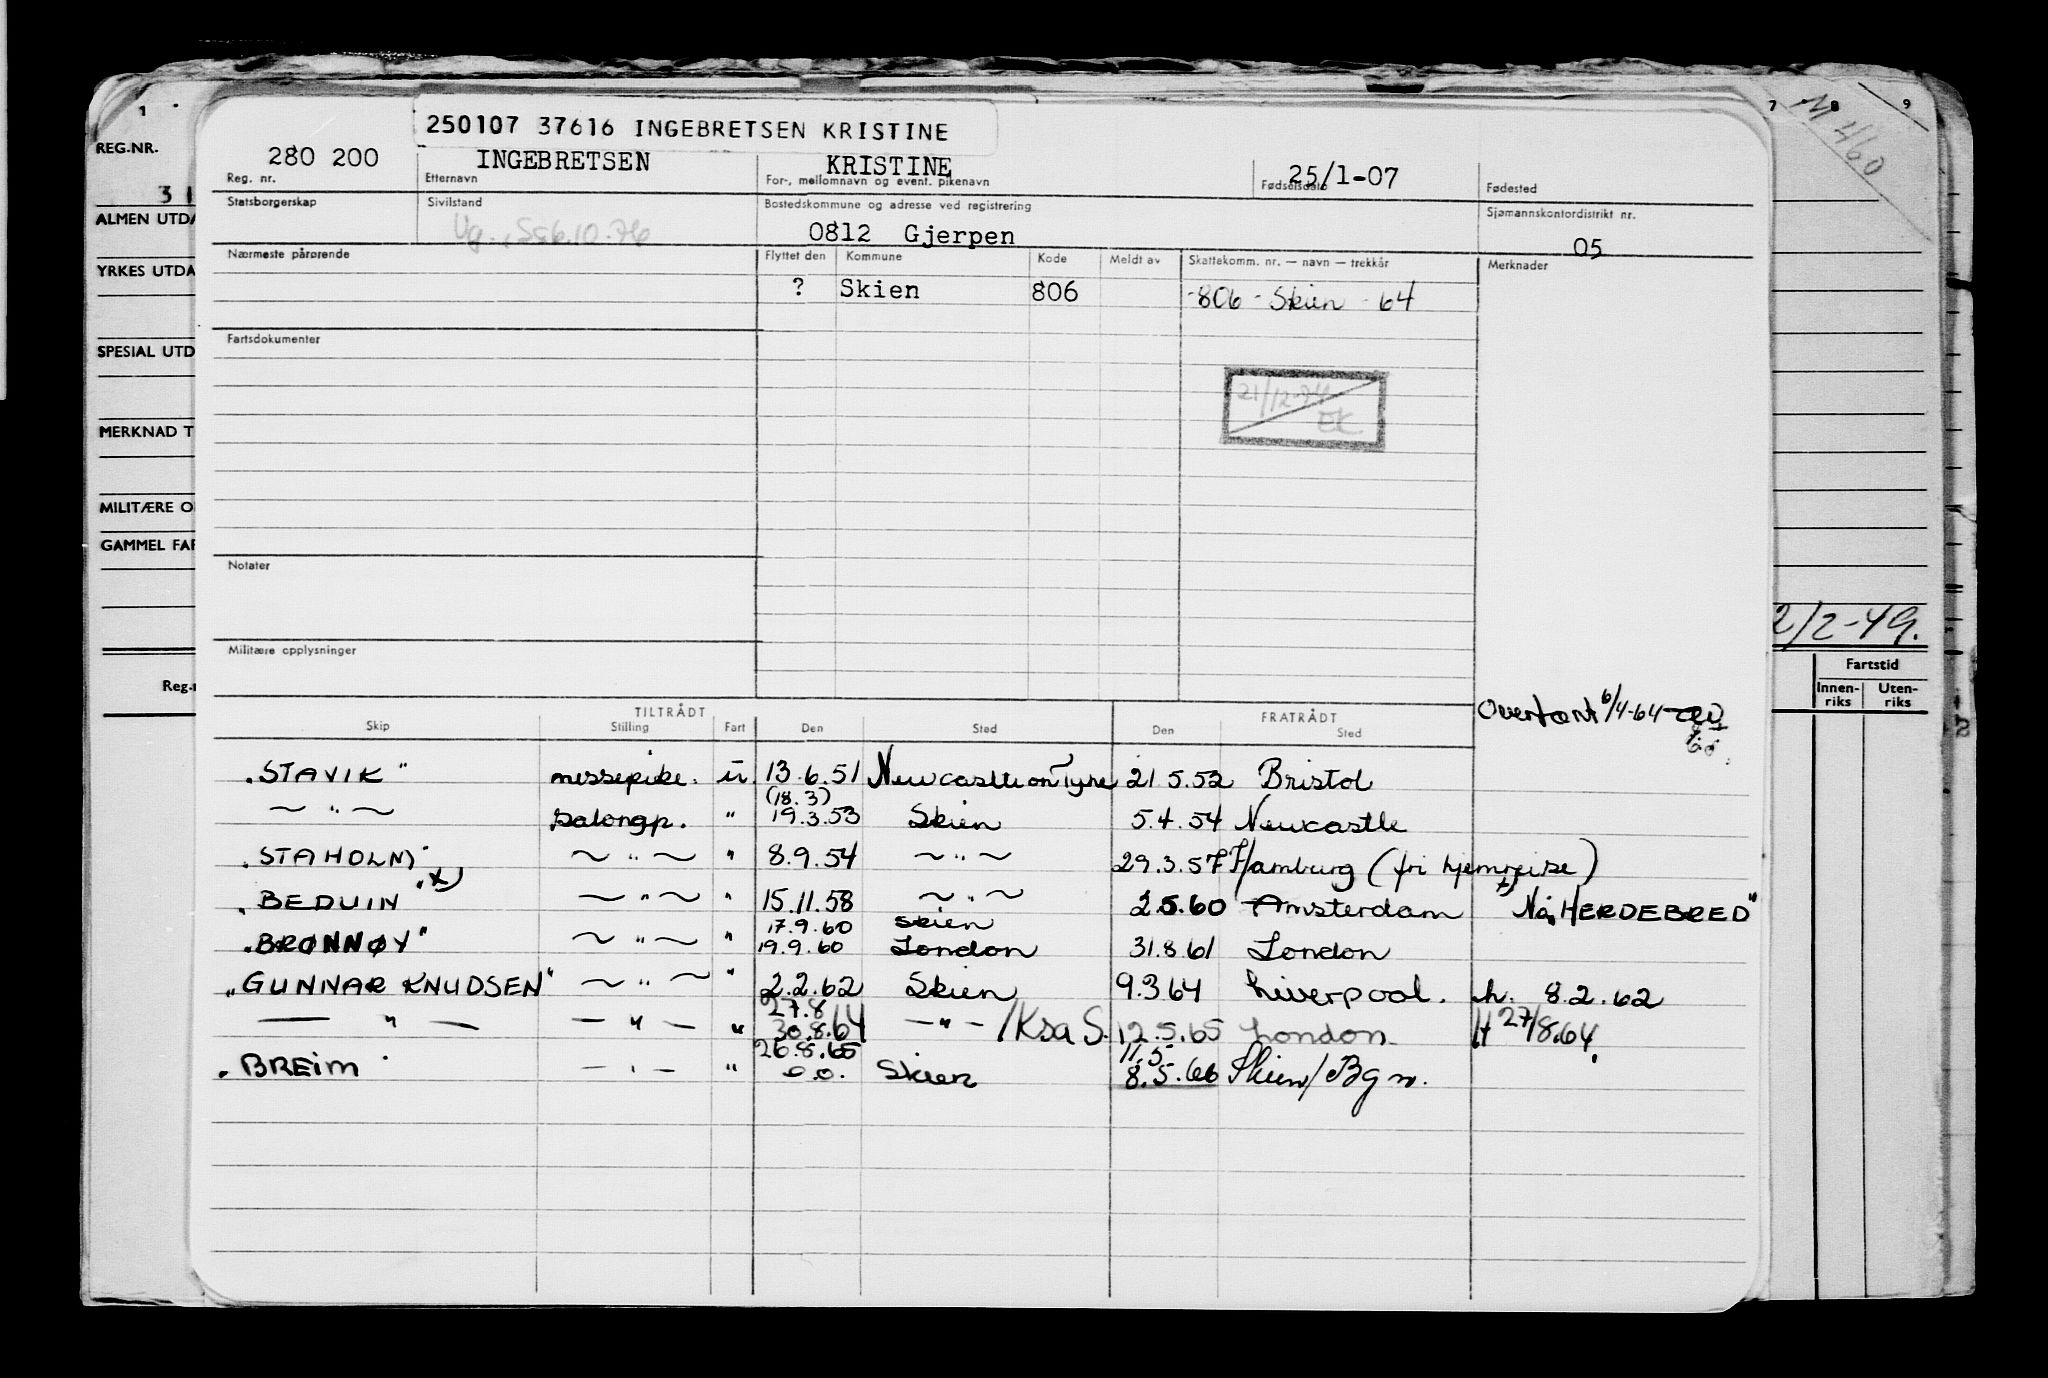 1 7 8 9
M 460
REG.NR.
31
ALMEN UTDA
YRKES UTDA
SPESIAL UTD
MERKNAD T
MILITÆRE O
GAMMEL FAR
Reg.n
2/2-49.
Fartstid
Innen-riks Uten-riks
250107 37616 INGEBRETSEN KRISTINE
280 200 INGEBRETSEN KRISTINE 25/1-07
Reg. nr. Etternavn For-, mellomnavn og event. pikenavn Fødselsdato Fødested
Statsborgerskap Sivilstand Bostedskommune og adresse ved registrering Sjømannskontordistrikt nr.
Ug. 6.10.76 0812 Gjerpen 05
Nærmeste pårørende Flyttet den Kommune Kode Meldt av Skattekomm. nr. — navn — trekkår Merknader
? Skien 806 -806 - Skien - 64
Fartsdokumenter
21/12-74
EK
Notater
Militære opplysninger
Overtatt 6/4-64
TILTRÅDT FRATRÅDT
Skip Stilling Fart Den Sted Den Sted
"STAVIK" messepike. u. 13.6.51 Newcastle on Tyne 21.5.52 Bristol
(18.3)
~ " ~ salongp. " 19.3.53 Skien 5.4.54 Newcastle
"STAHOLM" ~ " ~ " 8.9.54 ~ " ~ 29.3.57 Hamburg (fri hjemreise)
"BEDUIN" x) ~ " ~ " 15.11.58 ~ " ~ 2.5.60 Amsterdam x) Nå "HERDEBRED"
17.9.60 Skien
"BRØNNØY" ~ " ~ " 19.9.60 London 31.8.61 London
"GUNNAR KNUDSEN" ~ " ~ " 2.2.62 Skien 9.3.64 Liverpool. h. 8.2.62
27.8
— " — — " — " 30.8.64 — " — /Ksa S. 12.5.65 London H 27/8.64.
26.8.65 11.5.
"BREIM" — " — " o.o. Skien 8.5.66 Skien/Bgn.